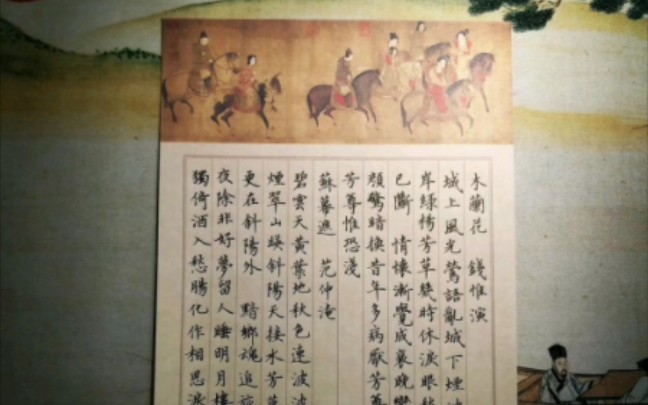 木蘭花　錢惟演
城上風光鶯語亂城下煙波
岸綠楊芳草幾時休淚眼愁
已斷　情懷漸覺成衰晚鸞
顏驚暗換昔年多病厭芳尊
芳尊惟恐淺
蘇幕遮　范仲淹
碧雲天黃葉地秋色連波波
煙翠山暎斜陽天接水芳草
更在斜陽外　黯鄉魂追旅
夜除非好夢留人睡明月樓
獨倚酒入愁腸化作相思淚